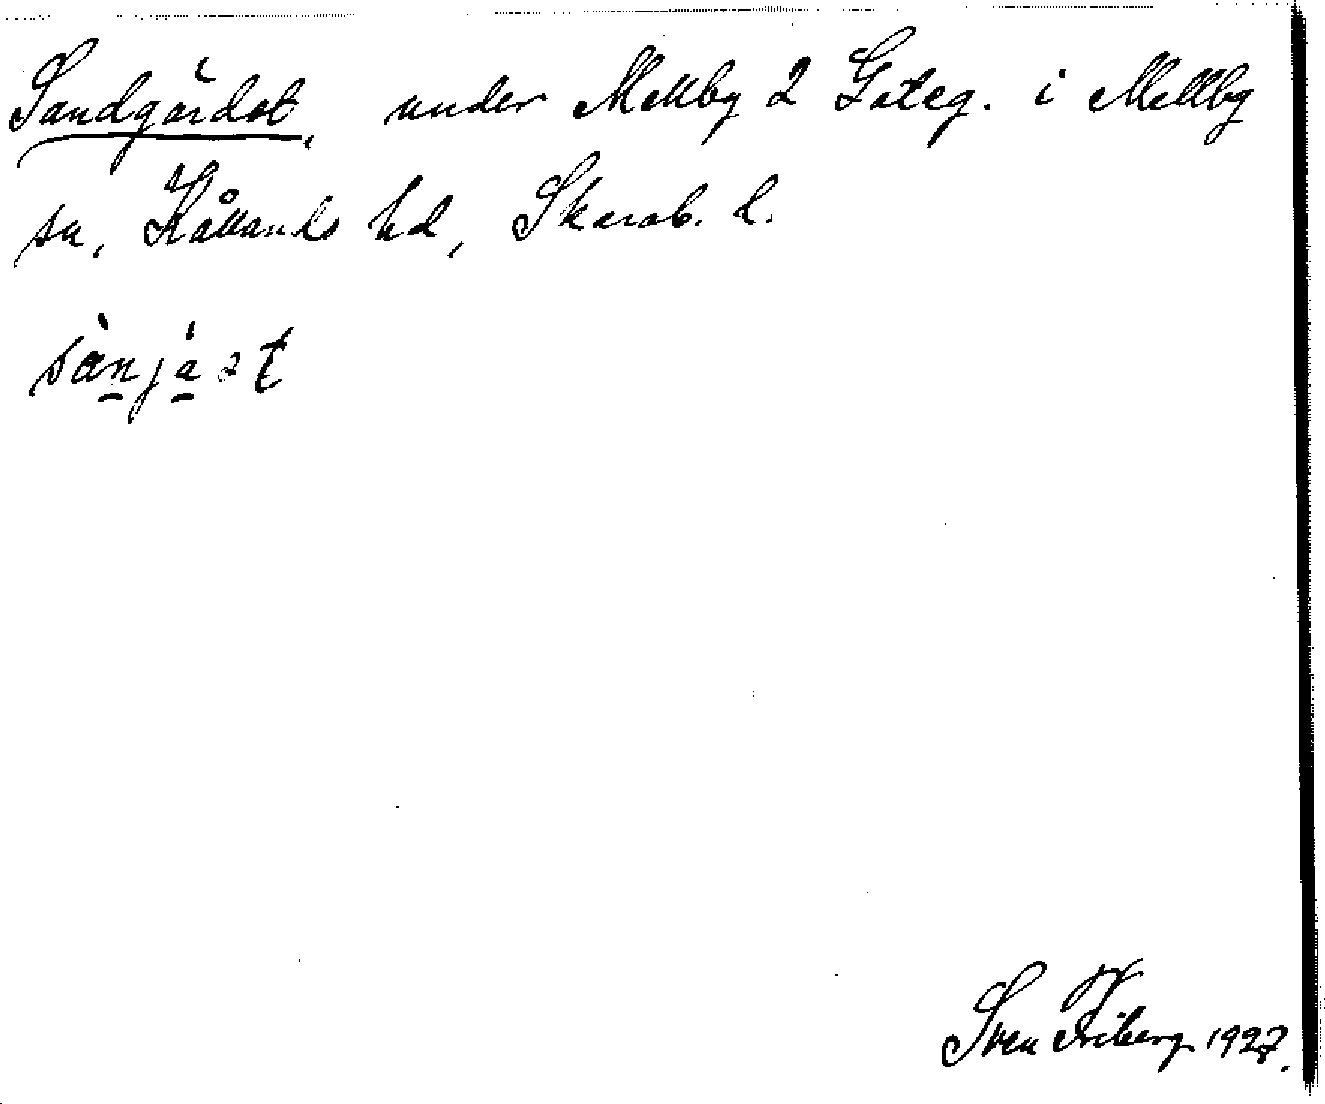 Sandgärdet, under Mellby 2 Göteg. i Mellby
sn, Kållands hd, Skarab. l.
sànjáat
Sven Friberg 1927.